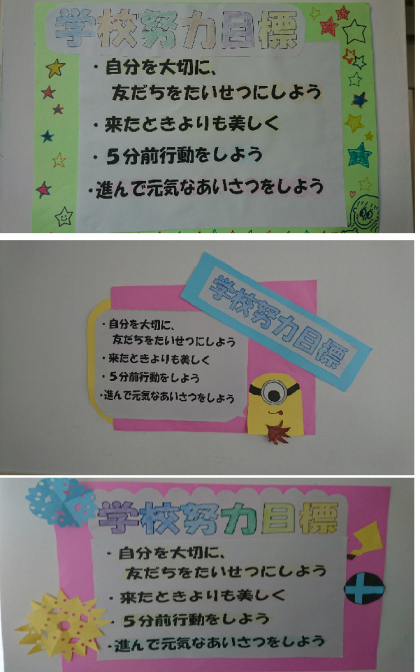 学校努力目標
・自分を大切に、
友だちをたいせつにしよう
・来たときよりも美しく
・５分前行動をしよう
・進んで元気なあいさつをしよう
学校努力目標
・自分を大切に、
友だちをたいせつにしよう
・来たときよりも美しく
・５分前行動をしよう
・進んで元気なあいさつをしよう
学校努力目標
・自分を大切に、
友だちをたいせつにしよう
・来たときよりも美しく
・５分前行動をしよう
・進んで元気なあいさつをしよう